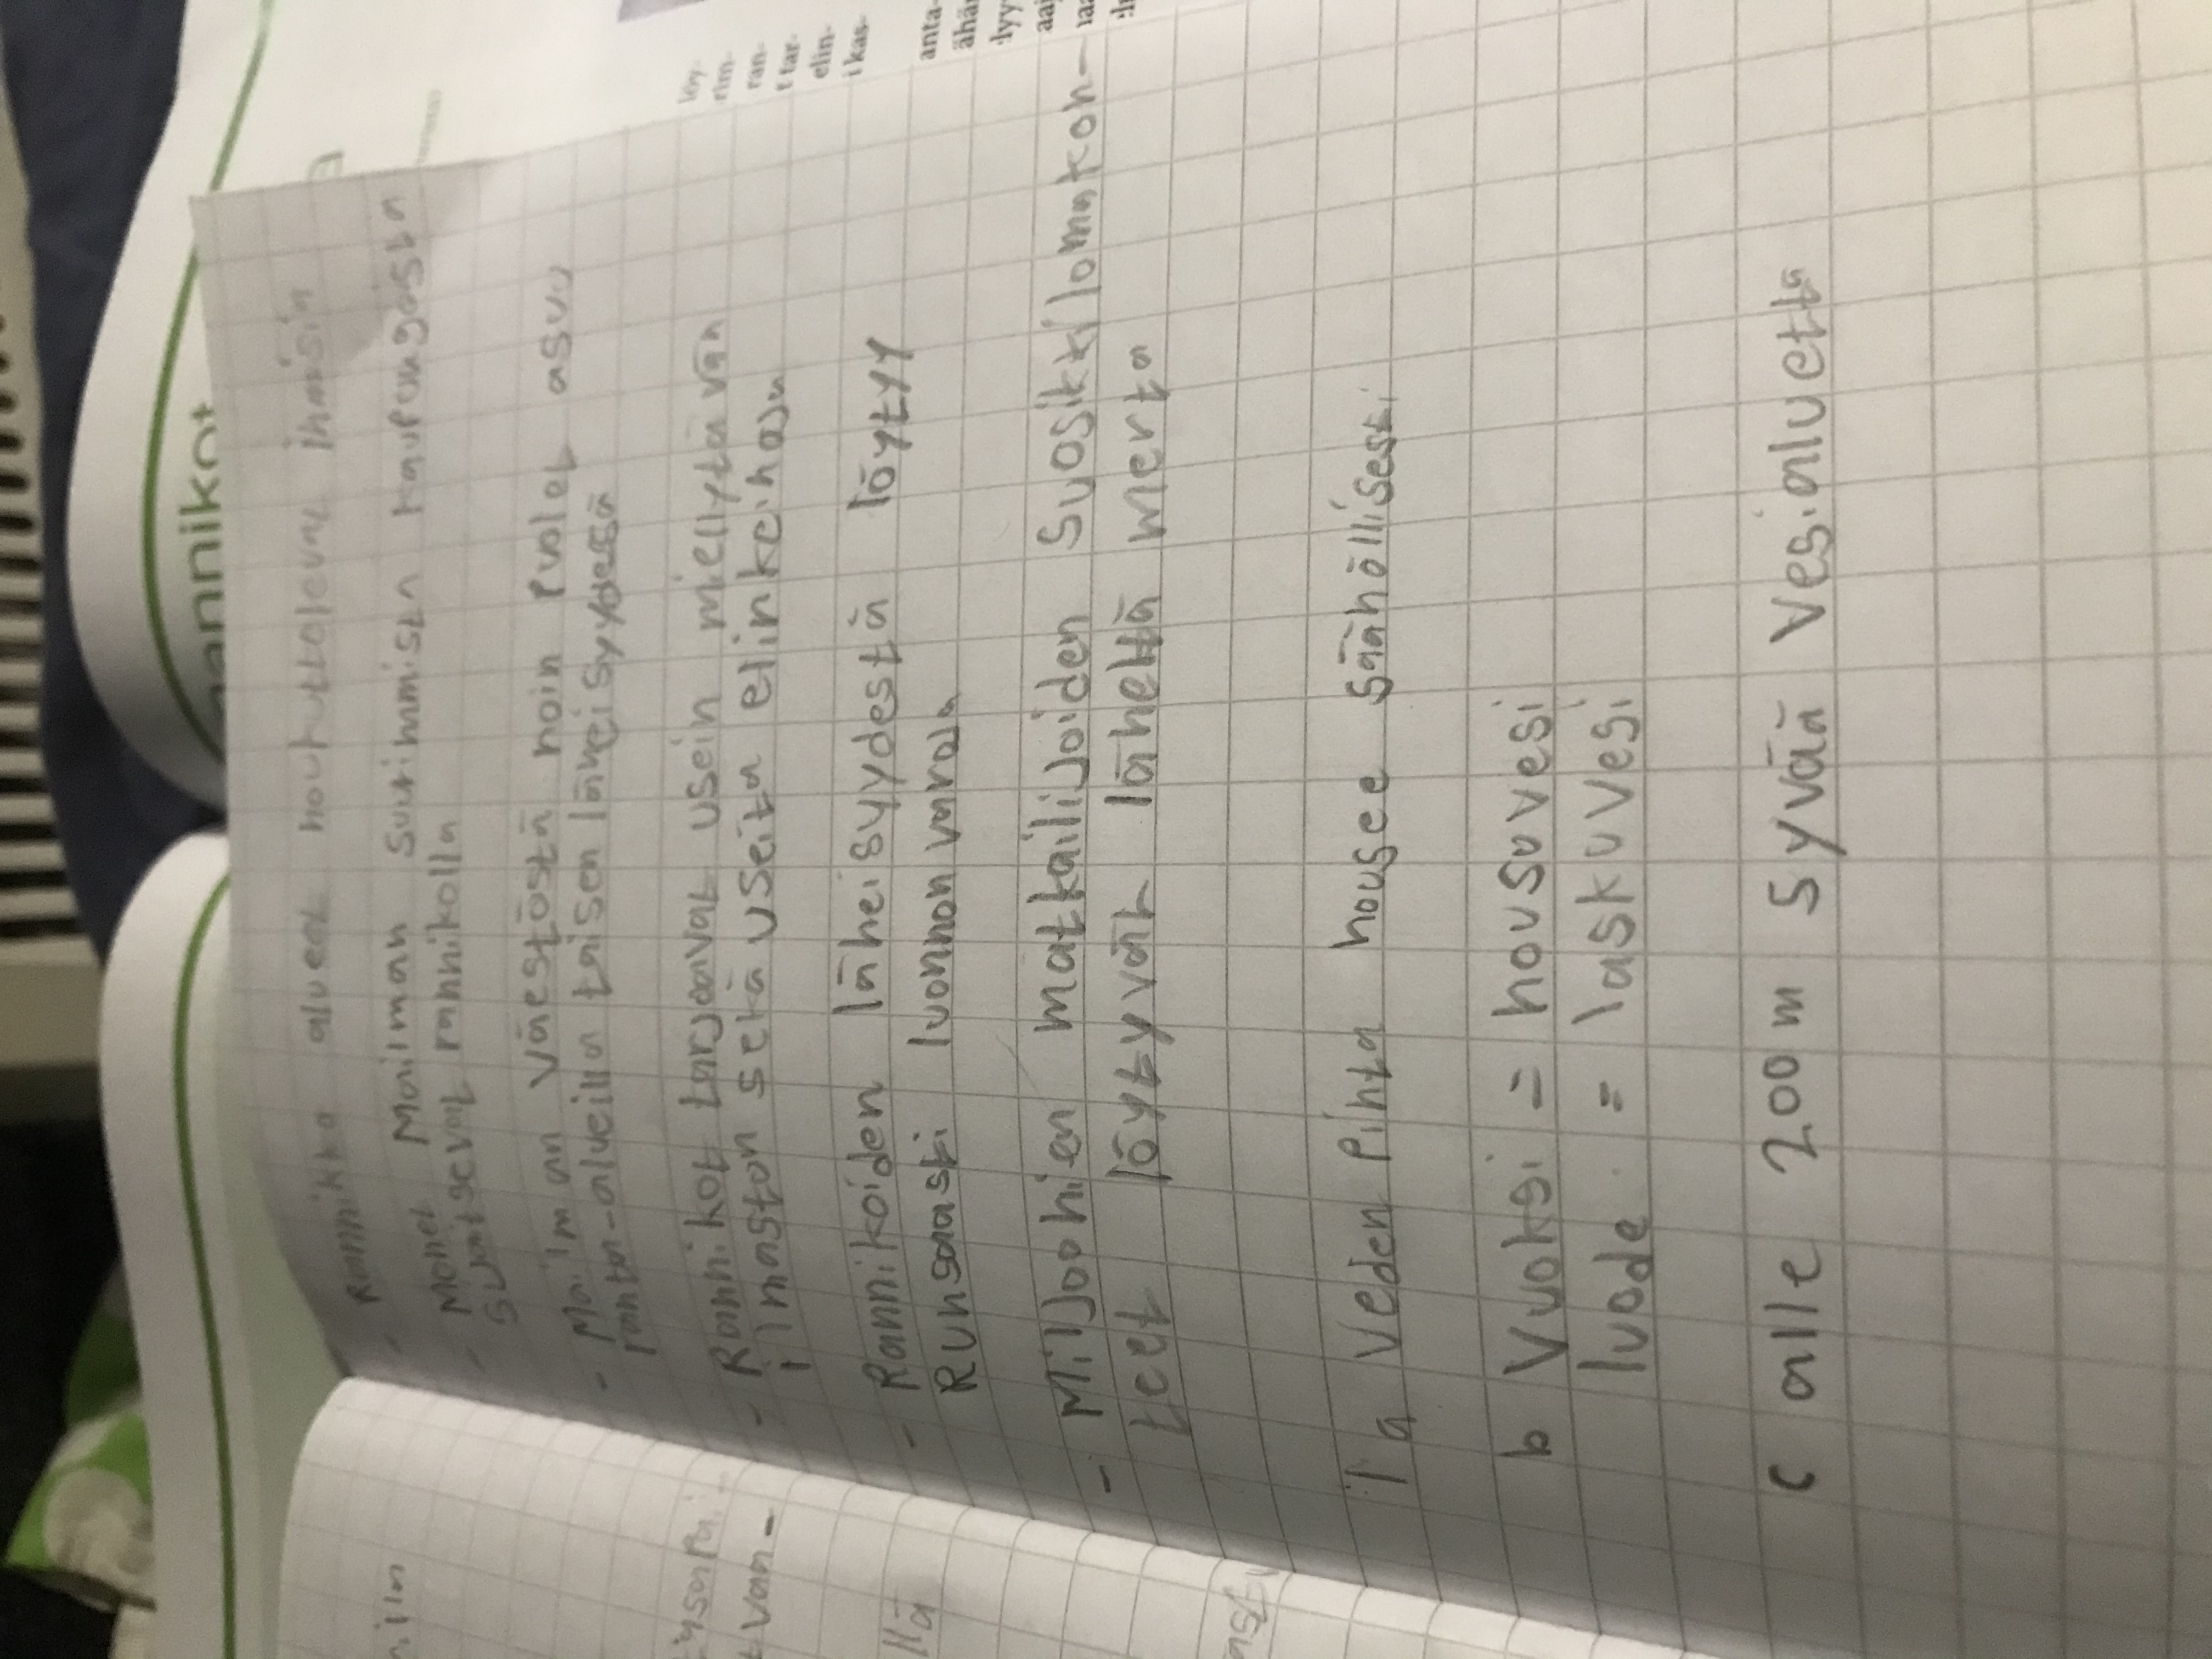 - Rannikko alueet houkuttelevat ihmisiä
- Monet Mailman suurimmista kaupungeista
suaitsevat rannikolla
- Mailman väestöstä noin puolet asuu
ranta-alueilla taisen läheisyydessä
- Rannikot tarjoavat usein miellytävän
ilmaston sekä useita elinkeinoja
- Rannikoiden läheisyydestä löytyy
Runsaasti luonnonvaroja
- Miljoonien matkailijoiden suosikkilomakoh-
teet löytyvät läheltä merta
1 a Veden pinta nousee säänöllisesti
b Vuoksi = nousuvesi
luode = laskuvesi
c alle 200m syvää vesialuetta
rannikot
löy-
rim-
ran-
t tar-
elin-
i kas-
anta-
ähä
lyy
aaj